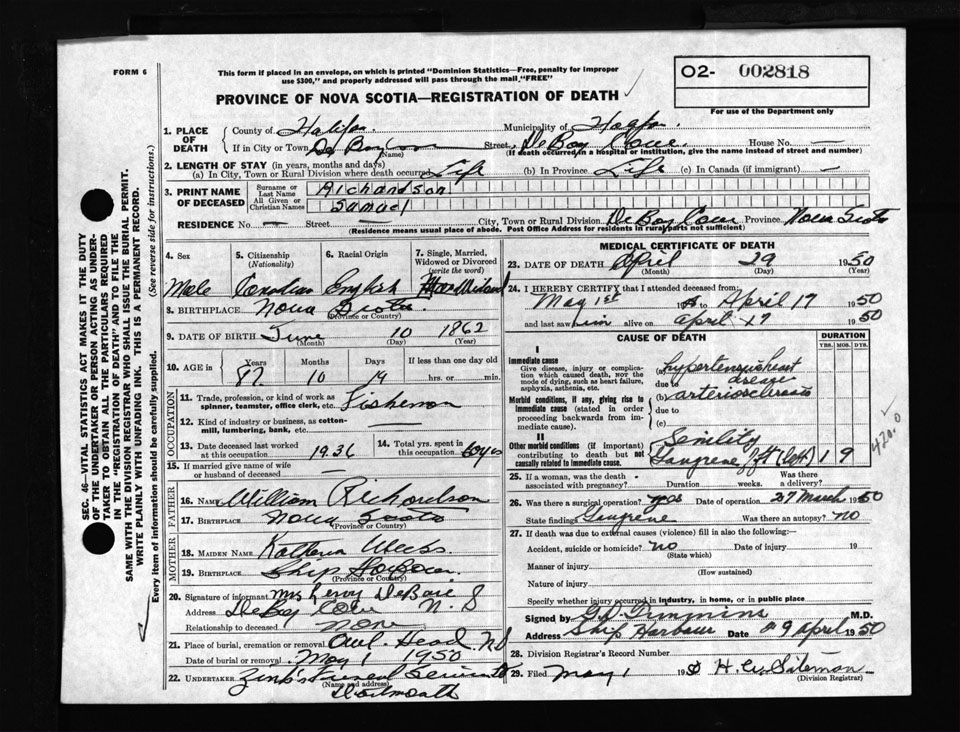 FORM 6
This form if placed in an envelope, on which is printed "Dominion Statistics—Free, penalty for improper
use $300," and properly addressed will pass through the mail "FREE"
O2- 002818
For use of the Department only
PROVINCE OF NOVA SCOTIA—REGISTRATION OF DEATH
1. PLACE OF DEATH County of Halifax Municipality of
If in City or Town (Name) Street DeBay Cove House No.
(If death occurred in a hospital or institution, give the name instead of street and number)
2. LENGTH OF STAY (in years, months and days)
(a) In City, Town or Rural Division where death occurred Life (b) In Province Life (c) In Canada (if immigrant) —
3. PRINT NAME OF DECEASED
Surname or Last Name Richardson
All Given or Christian Names Samuel
RESIDENCE No. — Street — City, Town or Rural Division DeBay Cove Province Nova Scotia
(Residence means usual place of abode. Post Office Address for residents in rural parts not sufficient)
4. Sex 5. Citizenship (Nationality) 6. Racial Origin 7. Single, Married, Widowed or Divorced (write the word)
Male Canadian English
8. BIRTHPLACE Nova Scotia
(Province or Country)
9. DATE OF BIRTH June 10 1862
(Month) (Day) (Year)
10. AGE in Years Months Days If less than one day old
87 10 19 hrs. or min.
OCCUPATION
11. Trade, profession, or kind of work as spinner, teamster, office clerk, etc. Fisherman
12. Kind of industry or business, as cotton-mill, lumbering, bank, etc. —
13. Date deceased last worked at this occupation 1936 14. Total yrs. spent in this occupation 60 yrs
15. If married give name of wife or husband of deceased
FATHER
16. NAME William Richardson
17. BIRTHPLACE Nova Scotia
(Province or Country)
MOTHER
18. MAIDEN NAME Weeks
19. BIRTHPLACE Ship Harbour
(Province or Country)
20. Signature of informant Mrs DeBaie
Address DeBay Cove N. S
Relationship to deceased none
21. Place of burial, cremation or removal Owl Head NS
Date of burial or removal May 1 1950
22. UNDERTAKER Funeral Service
(Name and address)
Dartmouth
MEDICAL CERTIFICATE OF DEATH
23. DATE OF DEATH April 29 1950
(Month) (Day) (Year)
24. I HEREBY CERTIFY that I attended deceased from:
May 1st to April 17 1950
and last saw him alive on April 17 1950
CAUSE OF DEATH DURATION
YRS. MOS. DYS.
I
Immediate cause
Give disease, injury or complication which caused death, not the mode of dying, such as heart failure, asphyxia, asthenia, etc.
(a) hypertensive heart disease
due to
Morbid conditions, if any, giving rise to immediate cause (stated in order proceeding backwards from immediate cause).
(b) arteriosclerosis
due to
(c)
II
Other morbid conditions (if important) contributing to death but not causally related to immediate cause.
Senility
Gangrene (left) 1 9
420.0
25. If a woman, was the death associated with pregnancy? Duration weeks. Was there a delivery?
26. Was there a surgical operation? yes Date of operation 27 March 1950
State findings Gangrene Was there an autopsy? no
27. If death was due to external causes (violence) fill in also the following:
Accident, suicide or homicide? no Date of injury 19
(State which)
Manner of injury
(How sustained)
Nature of injury
Specify whether injury occurred in industry, in home, or in public place
Signed by M.D.
Address Ship Harbour Date 29 April 1950
28. Division Registrar's Record Number
29. Filed May 1 1950 H.
(Division Registrar)
SEC. 46—VITAL STATISTICS ACT MAKES IT THE DUTY
OF THE UNDERTAKER OR PERSON ACTING AS UNDER-
TAKER TO OBTAIN ALL THE PARTICULARS REQUIRED
IN THE "REGISTRATION OF DEATH" AND TO FILE THE
SAME WITH THE DIVISION REGISTRAR WHO SHALL ISSUE THE BURIAL PERMIT.
WRITE PLAINLY WITH UNFADING INK. THIS IS A PERMANENT RECORD.
Every item of information should be carefully supplied. (See reverse side for instructions.)